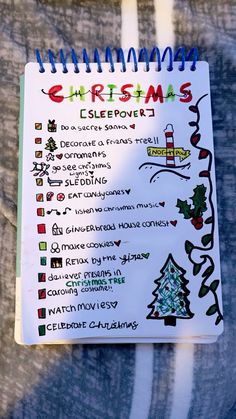 CHRISTMAS
[SLEEPOVER]
Do a secret santa
Decorate a friends tree!!
Ornaments
go see christmas
lights
SLEDDING
NORTH
EAT candycanes
listen to christmas music
GINGERBREAD HOUSE CONTEST
MAKE COOKIES
RELAX BY the
deliever presents in
CHRISTMAS TREE
caroling costume!!
WATCH MOVIES
CELEBRATE Christmas